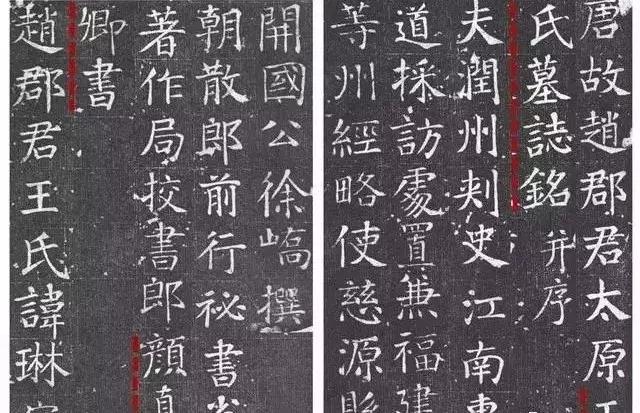 唐故趙郡君太原
氏墓誌銘并序
夫潤州刾史江南東
道採訪處置兼福建
䓁州經略使慈源縣
開國公徐嶠撰
朝散郎前行祕書省
著作局挍書郎顔真
卿書
趙郡君王氏諱琳